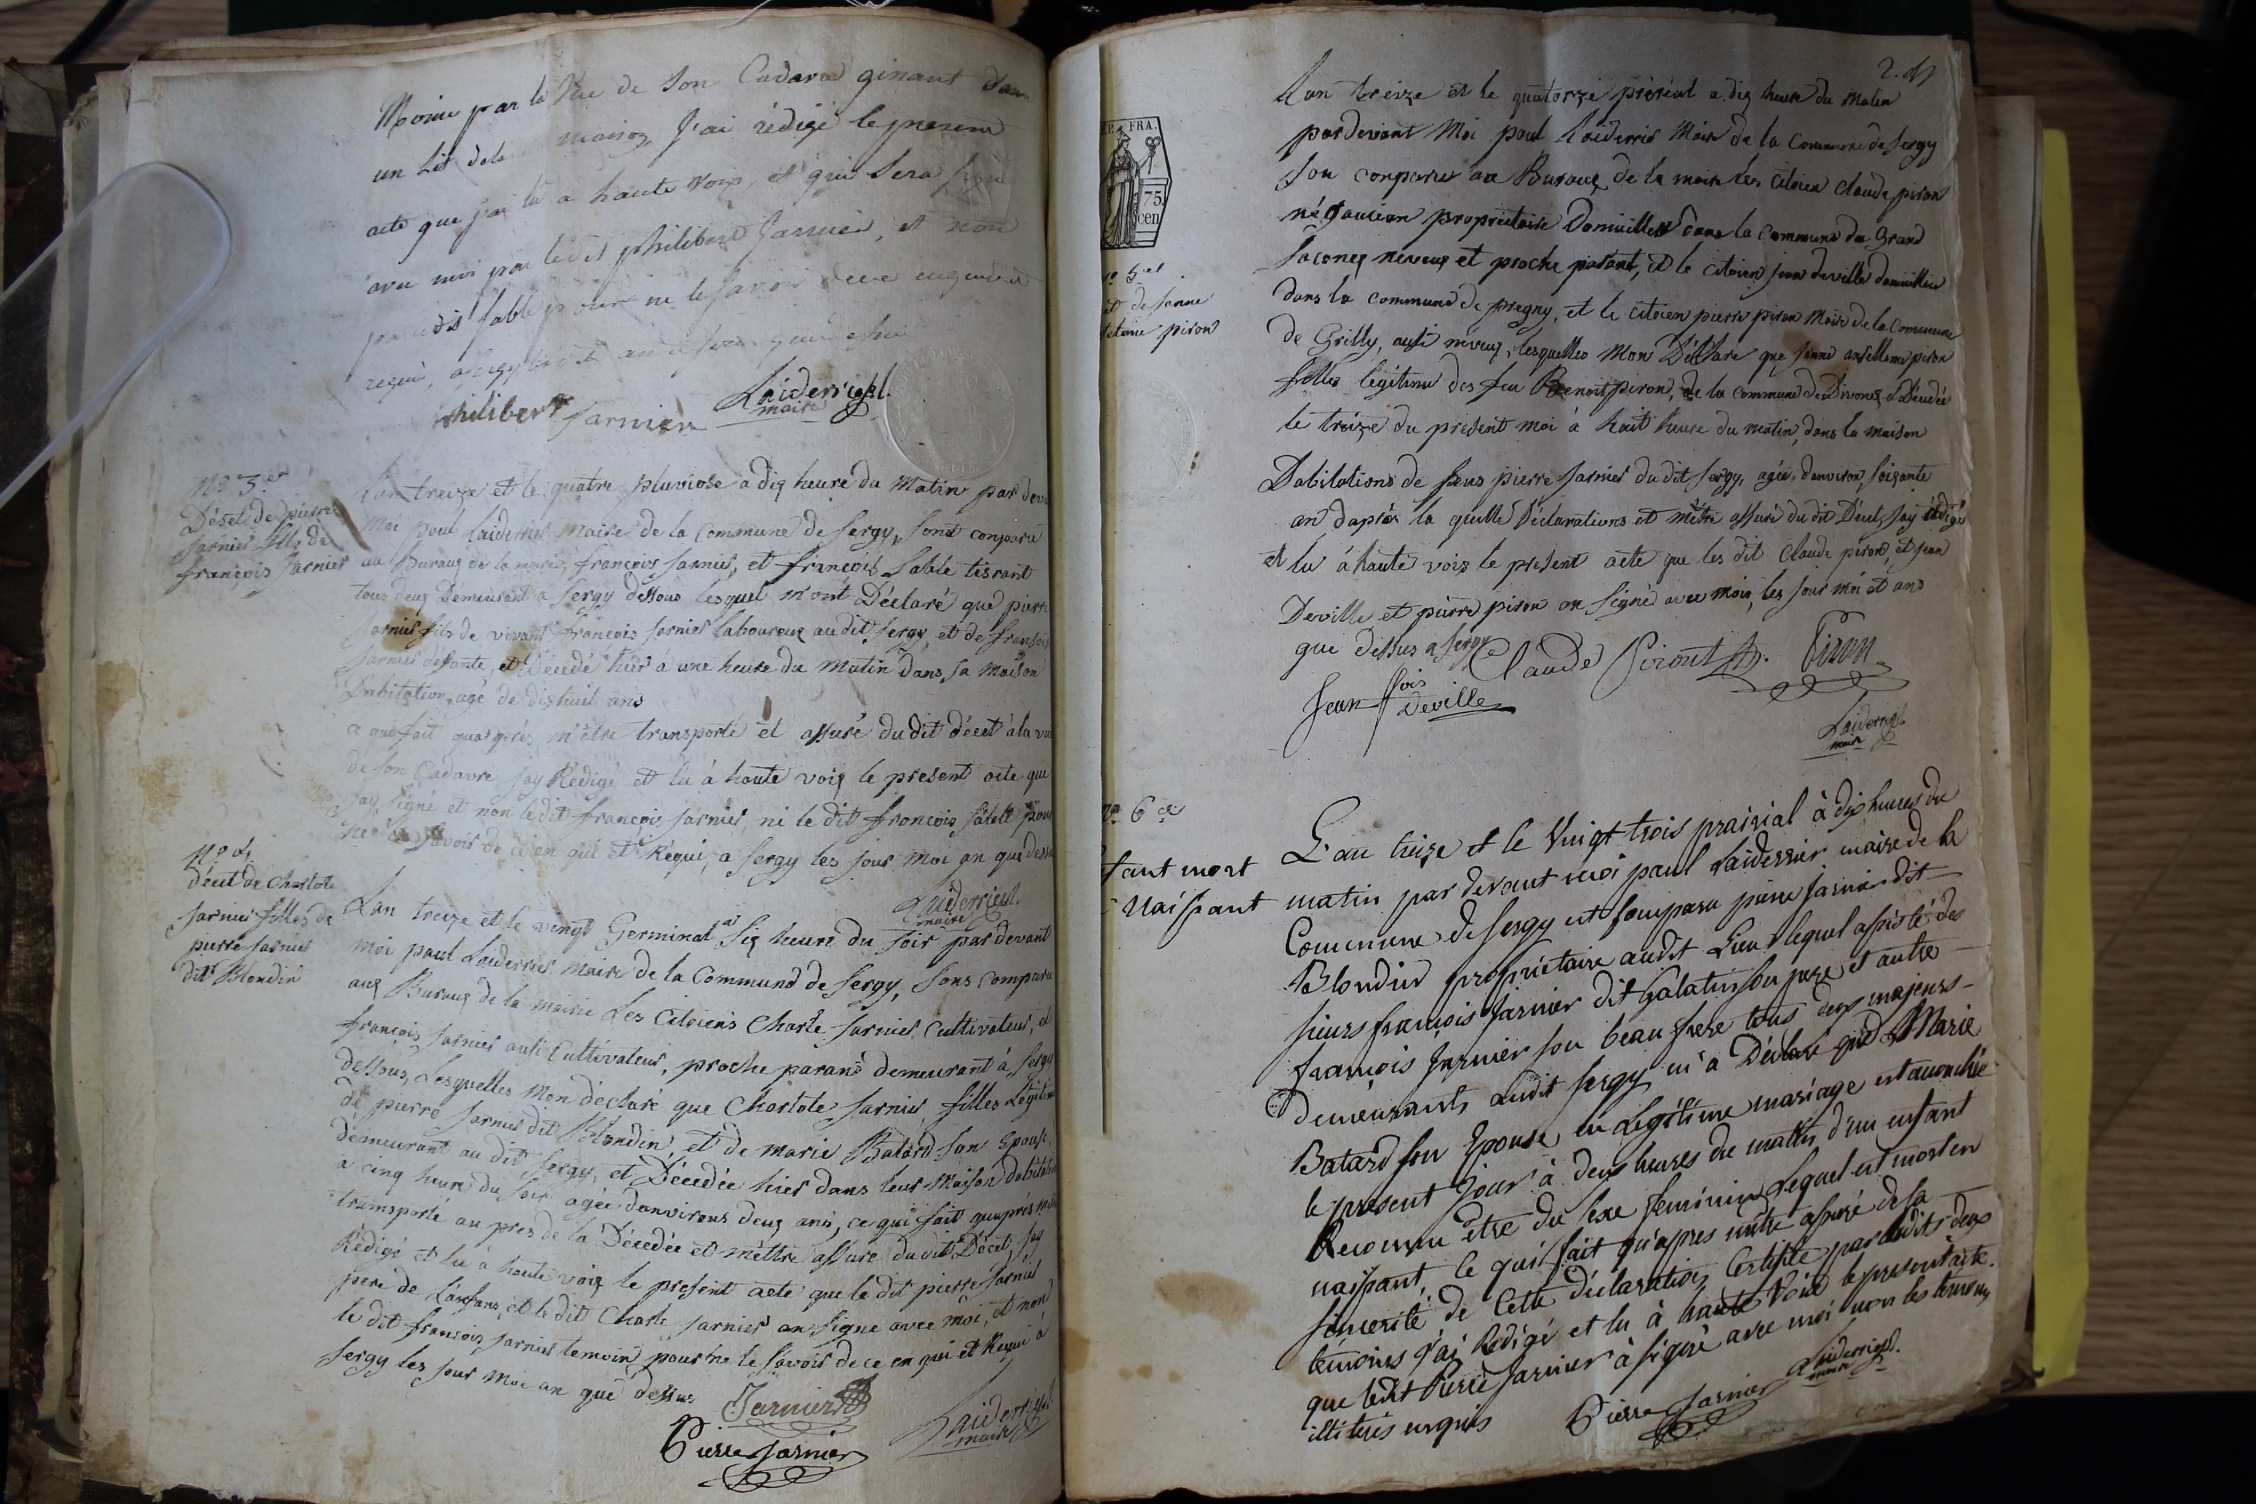 Moirie par la Vue de Son Cadavre ginant dans
un Lit de la maison J'ai rédigé le present
acte que j'ai lû a haute voix, et qui Sera Signé
avec moi par ledit philibert Jarnier, et non
par ledit Sablé pour ne le Savoir de ce enquis et
requi,
philibert Jarnier Laiderrier
maire
No 3.er
Décet de pierre
Jarnier fils de
françois Jarnier
L'an treize et le quatre pluviose a dix heure du Matin par devant
Moi poul Laiderrier maire de la Commune de Sergy, Sont conparu
au Buraux de la mairie, françois Jarnier, et françois Sablé tisrant
tous deux Demeurant a Sergy dessous lesquel m'ont Déclaré que pierre
Jarnier fils de vivant françois Jarnier laboureux au dit Sergy, et de fransois
Jarnier défante, et Décedé hier à une heure du Matin dans Sa Maison
Dabitation, agé de dishuit ans
ce qui fait qua près m'être transporté et assuré du dit décet à la vue
de Son Cadavre Jay Rédigé et lu à haute voix le present acte que
Jay Signé et non le dit françois Jarnier, ni le dit françois Sablé pour
ne Savoir de ce en qui et Requi, a Sergy les jour moi an que dessu
Laiderrier
maire
No 4
Décet de Charlote
Jarnier filles de
pierre Jarnier
dit Blondin
L'an treize et le vingt Germinal a Six heure du Soir par devant
moi poul Laiderrier maire de la Commune de Sergy, Sons comparu
aux Buraux de la mairie Les Citoiens Charle Jarnier Cultivateur, et
françois Jarnier ausi Cultivateur, proche parans demeurant à Sergy
dessous, Lesquelles Mon déclaré que Charlote Jarnier filles Légitime
de pierre Jarnier dit Blondin, et de marie Batard Son Epouse,
demeurant au dit Sergy, et Décedée hier dans leur Maison Dabitation
a cinq heure du Soir agée danvirons deux ans, ce qui fait qu'aprés m'être
transporté au pres de la Décedée et mêttre assuré du dit Décet, Jay
Rédigé et lu à haute voix le present acte que le dit pierre Jarnier
pere de Lanfans, et le dit Charle Jarnier on Signe avec moi, et non
le dit françois Jarnier temoin pour ne le Savoir de ce en qui et Requi à
Sergy les jour Moi an que dessus
Jarnier
Pierre Jarnier
Laiderrier
maire
REP. FRA.
75
cen
No 5.er
piron
L'an treize et le quatorze prèrial a dix heure du Matin
par devant Moi poul Laiderrier Maire de la Commune de Sergy
Son conparu au Buraux de la mairie les Citoien Claude piron
négoucian propriétaire Domicillié dans la Commune du Grand
Saconex neveux et proche parant, et le Citoien jean deville domicillié
dans la Commune de pregny, et le Citoien pierre piron Maire de la Commune
de Grilly, ausi neveux, lesquelles Mon Déclare que Janne anselleme piron
filles légitime des feu Benoit piron, de la Commune de Divonex Décedée
le treize du present moi à huit heure du matin, dans la maison
Dabitations de Sieur pierre Jarnier du dit Sergy, agée danviron Soixante
an d'aprés la quelle Déclarations et mêtre assuré du dit Décet, Jay rédigé
et lu à haute voix le present acte que les dit Claude piron, et jean
Deville et pierre piron on Signé avec moi, les jour moi et ans
que dessus a Sergy
Claude Piront Piron
Jean fois Deville
Laiderrier
maire
No 6.e
fant mort
Naissant
L'an treize et le Vingt trois prairial à dix heures du
matin par devant moi paul Laiderrier maire de la
Commune de Sergy est Comparu pierre Jarnier dit
Blondin propriétaire audit Lieu lequel assisté des
sieurs françois Jarnier dit Galatin Son pere et autre
françois Jarnier Son beau frere tous deux majeurs
demeurants audit Sergy m'a Déclaré que Marie
Batard Son Epouse en Légitime mariage est accouchée
le present Jour à deux heures du matin d'un enfant
Reconnu être du Sexe feminin Lequel est mort en
naissant, Ce qui fait qu'apres m'être assuré de la
Sincerité de Cette Déclaration Certifiée par lesdits deux
témoins J'ai Redigé et lu à haute Voix le present acte.
que ledit Pierre Jarnier à Signé avec moi non les témoins
illiterés enquis
Pierre Jarnier
Laiderrier
maire